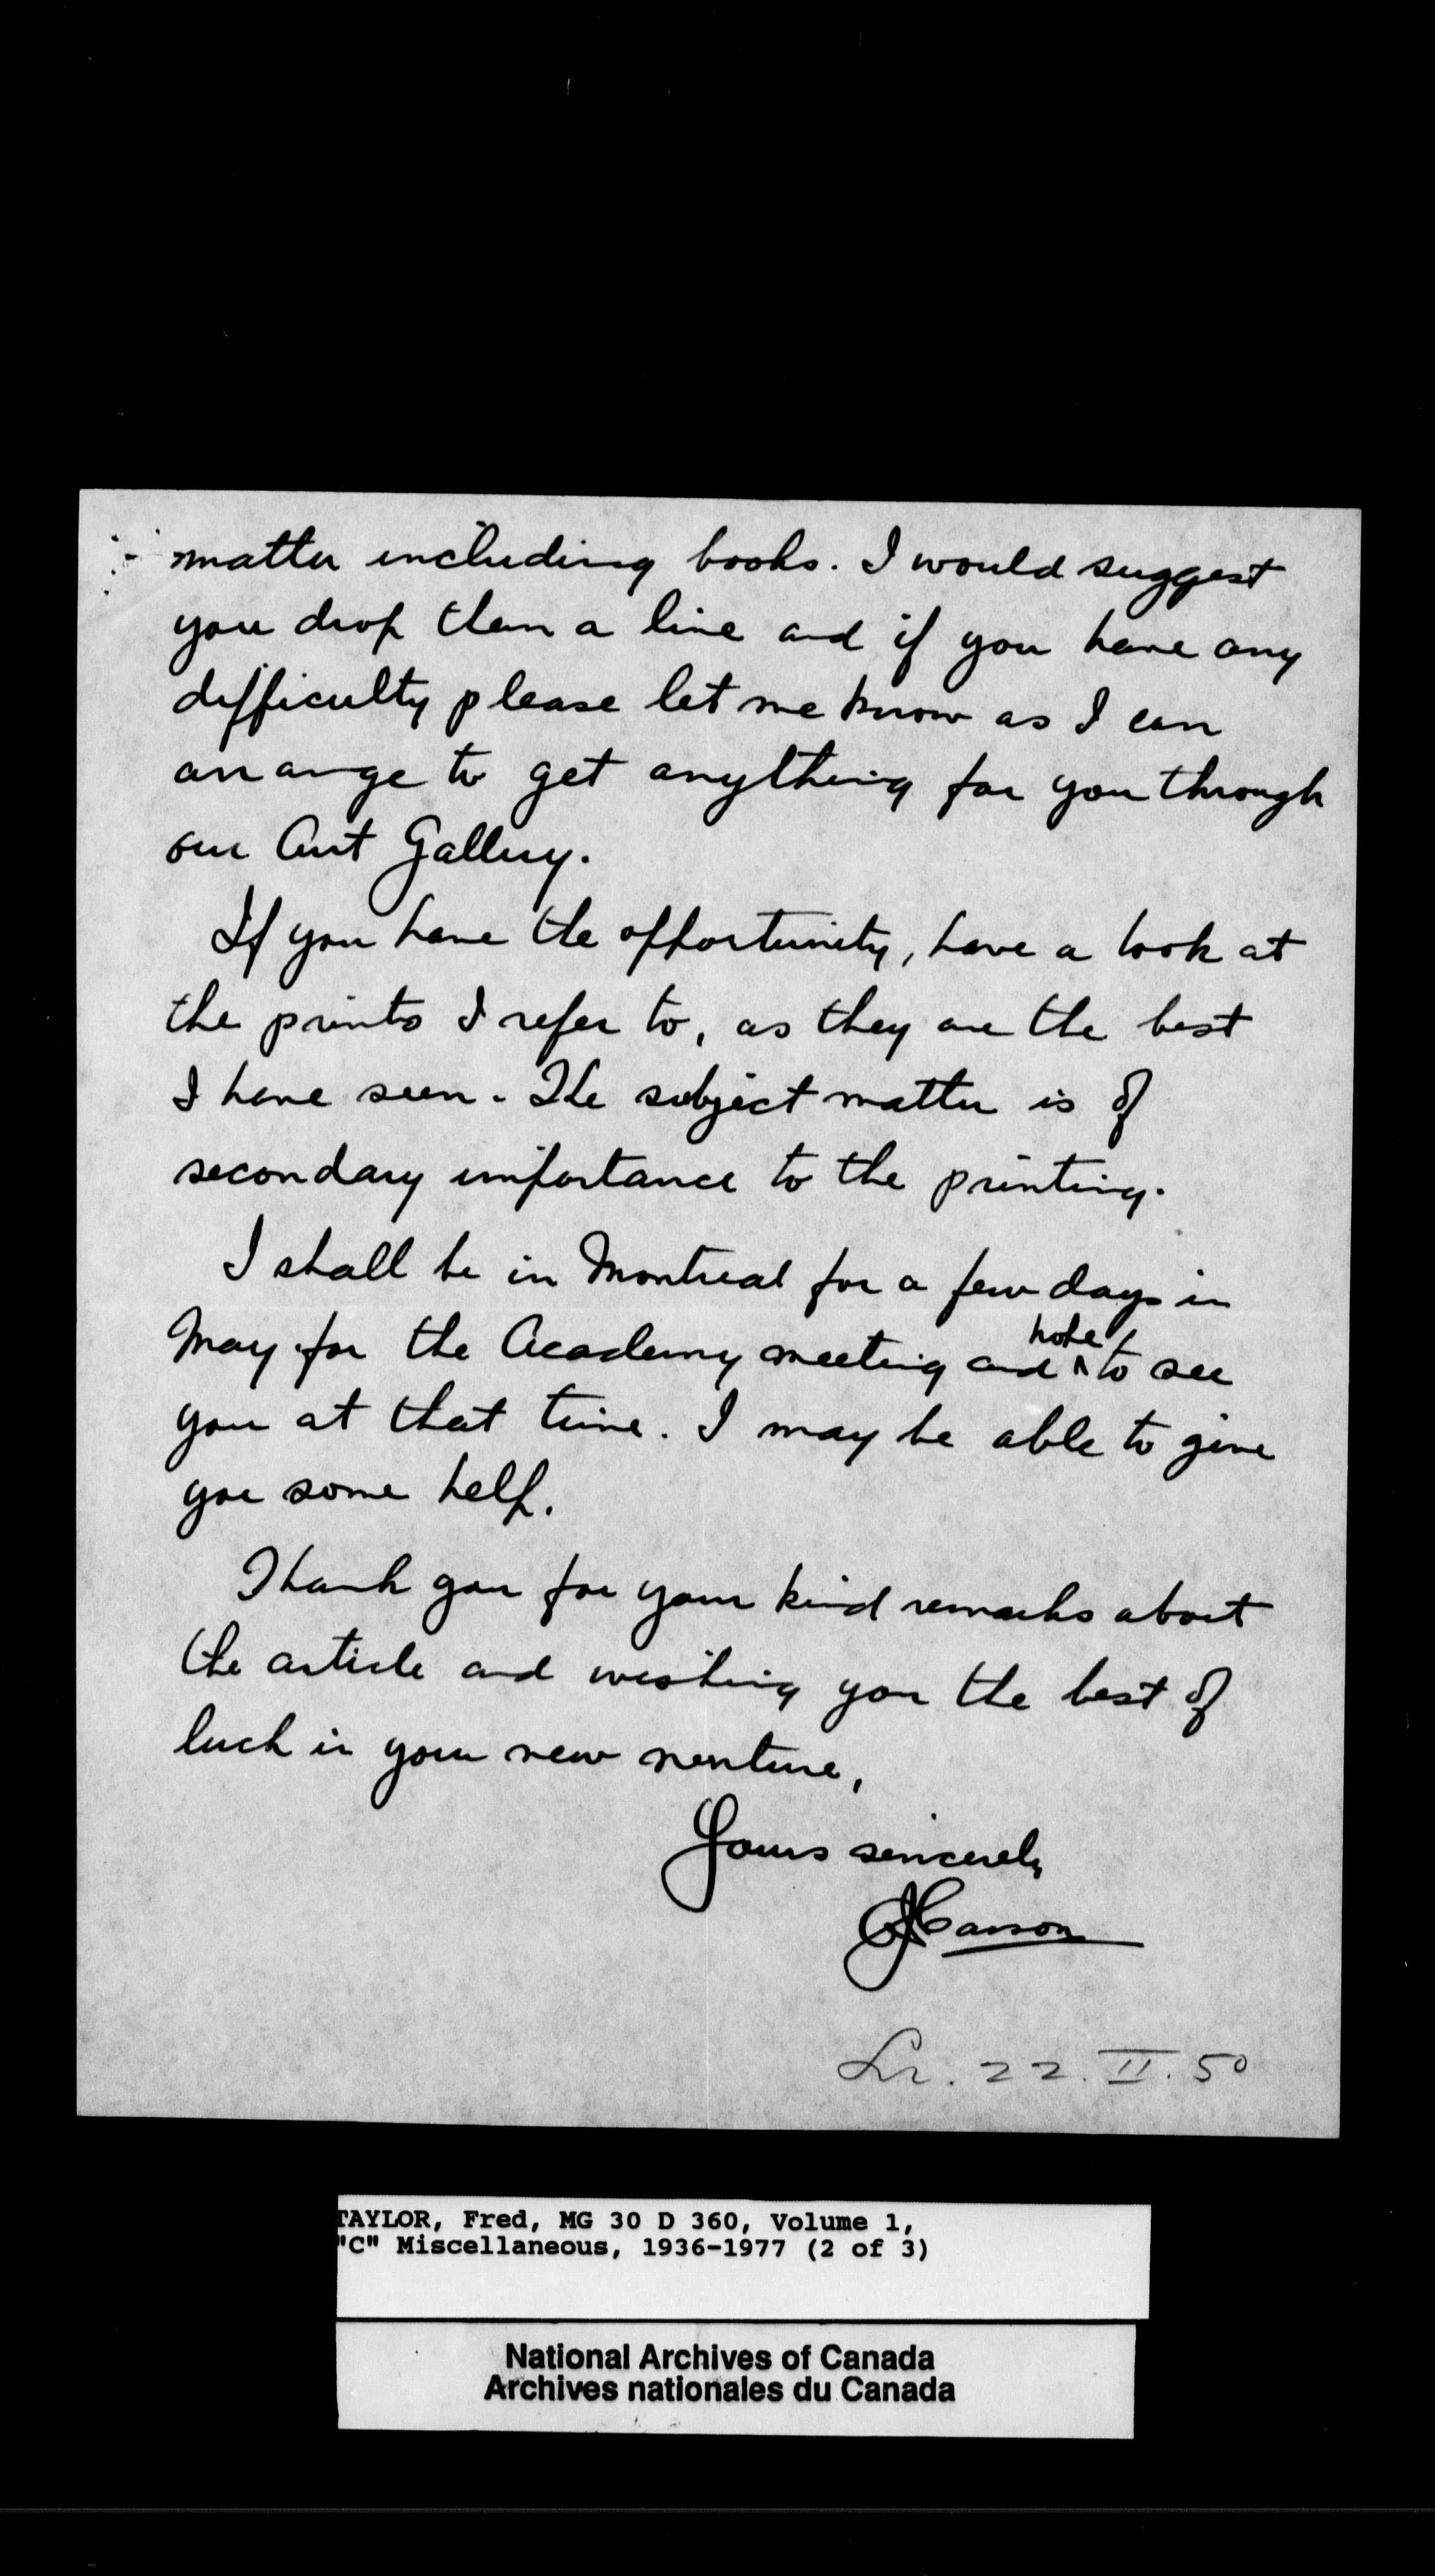 matter including books. I would suggest
you drop them a line and if you have any
difficulty please let me know as I can
arrange to get anything for you through
our Art Gallery.
If you have the opportunity, have a look at
the prints I refer to, as they are the best
I have seen. The subject matter is of
secondary importance to the printing.
I shall be in Montreal for a few days in
May for the Academy meeting and hope to see
you at that time. I may be able to give
you some help.
Thank you for your kind remarks about
the article and wishing you the best of
luck in your new venture,
Yours sincerely
Carson
22.II.50
TAYLOR, Fred, MG 30 D 360, Volume 1,
"C" Miscellaneous, 1936-1977 (2 of 3)
National Archives of Canada
Archives nationales du Canada